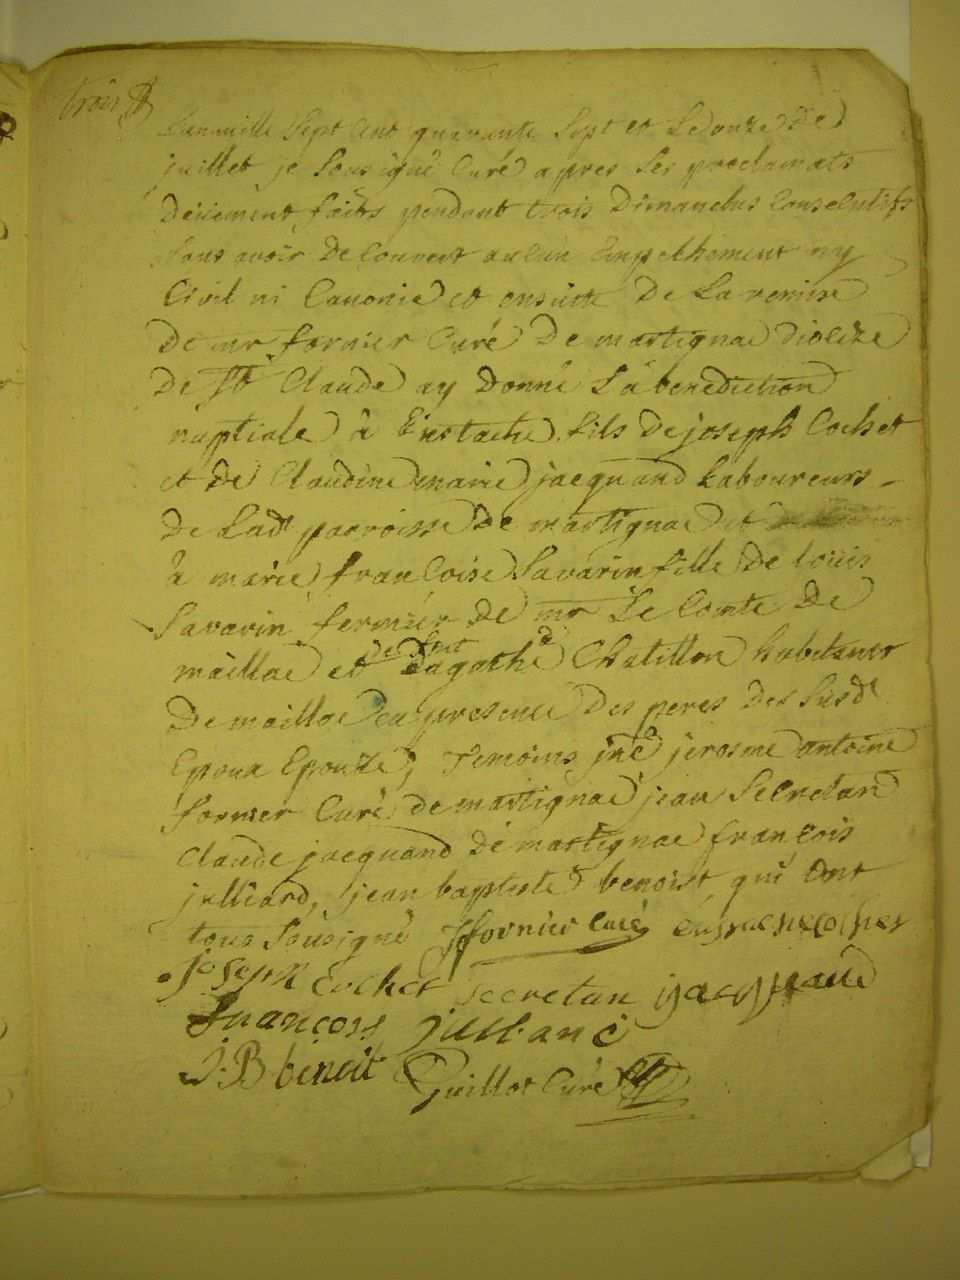 trois
Lan mille Sept Cent quarante Sept et Le onze De
juillet je Sousigné Curé apres Les proclamats
Deüement faits pendant trois Dimanches Consecutifs
Sans avoir Decouvert aucun Empechement ny
Civil ni Canonic et ensuitte De La remise
De mr fornier Curé De martignac Diocèze
De St Claude ay Donné La benediction
nuptiale à Eustache fils De joseph Cochet
et de Claudine marie jacquand Laboureurs
De Ladt parroisse De martignac et
à marie francoise Savarin fille De loüis
Savarin fermier De mr Le Comte De
maillac et defunt Dagathe Chatillon habitants
De maillac en presence Des peres Des Susd
Epoux Epouze, temoins jerosme antoine
fornier Curé de martignac jean Secretan
Claude jacquand de martignac francois
julliard, jean baptiste benoist qui ont
tous Sousigné fornier curé eustache cochet
joseph cochet Secretan jacquand
francois julliard
J. B benoit Guillot Curé